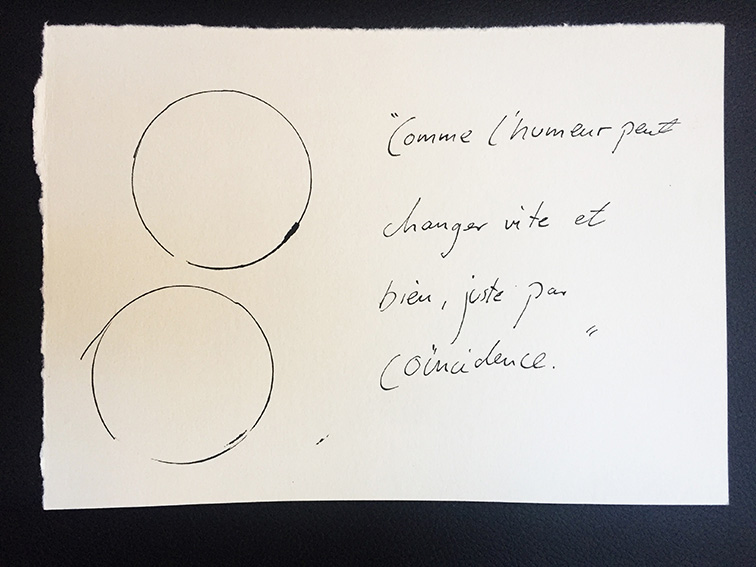 "Comme l'humeur peut
changer vite et
bien, juste par
coïncidence."